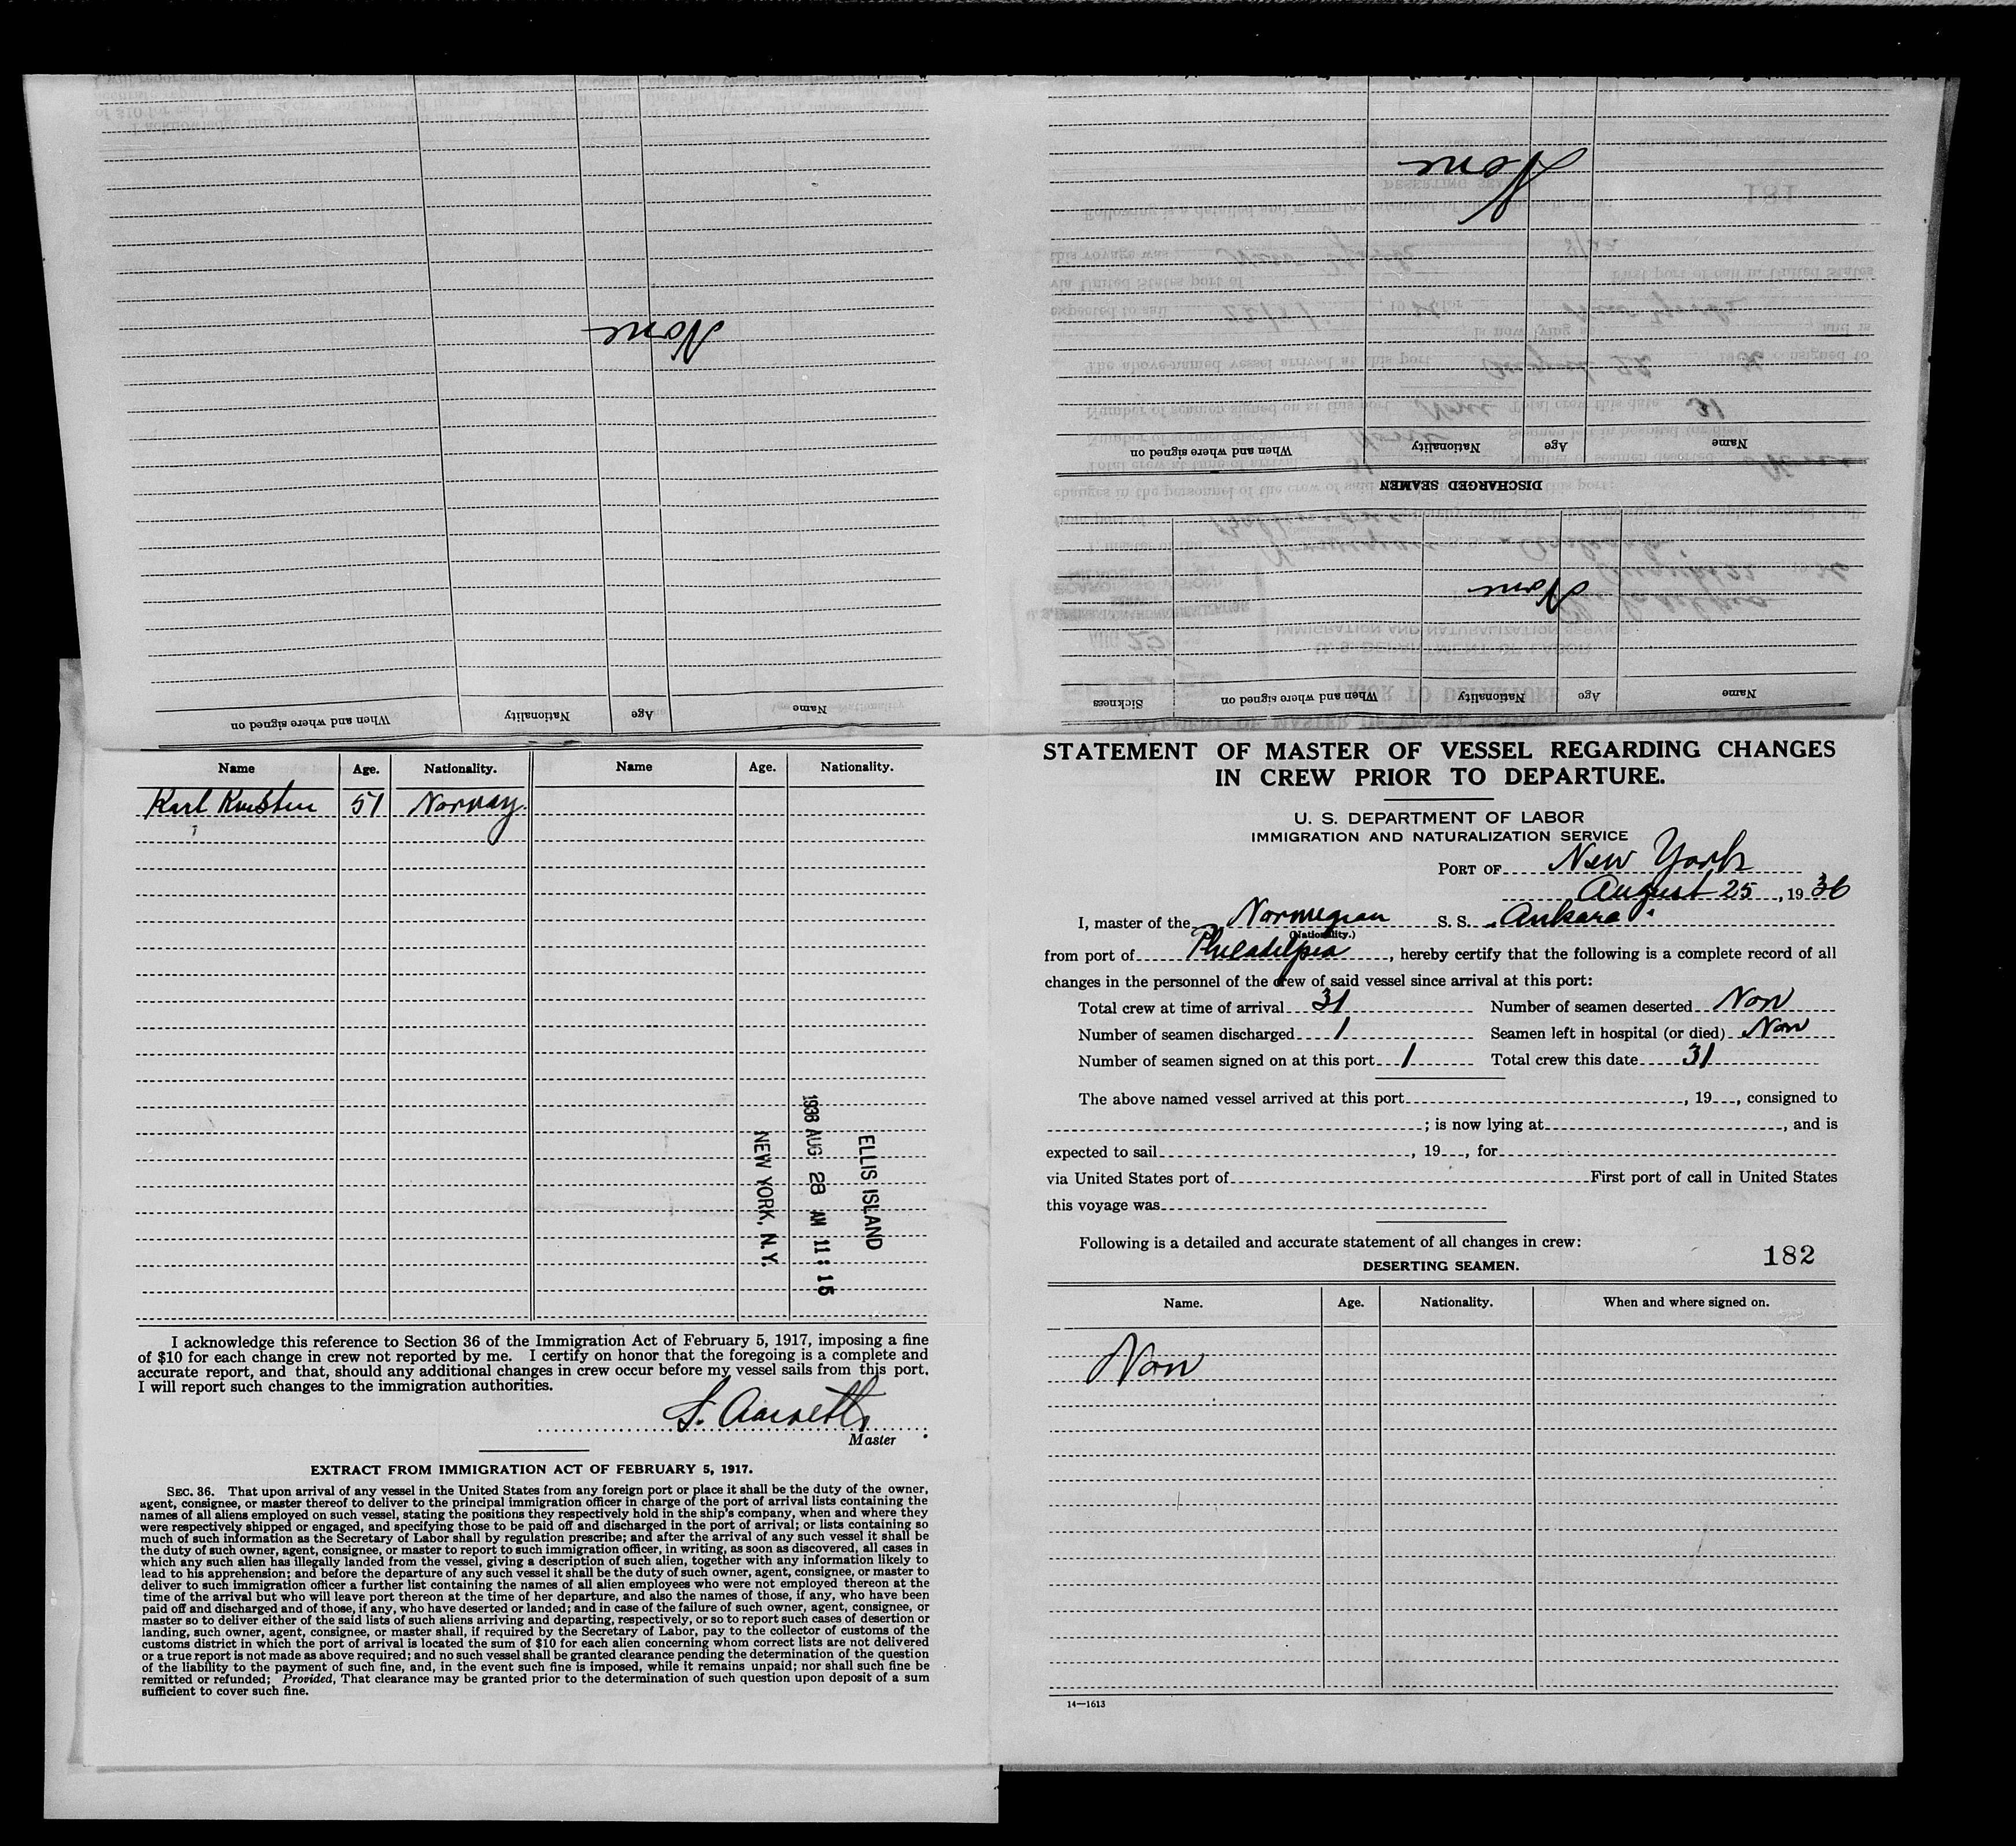 When and where signed on
Nationality
Age
Name
None
Sickness
When and where signed on
Nationality
Age
Name
None
DISCHARGED SEAMEN
When and where signed on
Nationality
Age
Name
None
Name Age. Nationality. Name Age. Nationality.
Karl 51 Norway.
ELLIS ISLAND
1936 AUG 28 AM 11:15
NEW YORK, N.Y.
I acknowledge this reference to Section 36 of the Immigration Act of February 5, 1917, imposing a fine
of $10 for each change in crew not reported by me. I certify on honor that the foregoing is a complete and
accurate report, and that, should any additional changes in crew occur before my vessel sails from this port,
I will report such changes to the immigration authorities.
Master
EXTRACT FROM IMMIGRATION ACT OF FEBRUARY 5, 1917.
SEC. 36. That upon arrival of any vessel in the United States from any foreign port or place it shall be the duty of the owner,
agent, consignee, or master thereof to deliver to the principal immigration officer in charge of the port of arrival lists containing the
names of all aliens employed on such vessel, stating the positions they respectively hold in the ship's company, when and where they
were respectively shipped or engaged, and specifying those to be paid off and discharged in the port of arrival; or lists containing so
much of such information as the Secretary of Labor shall by regulation prescribe; and after the arrival of any such vessel it shall be
the duty of such owner, agent, consignee, or master to report to such immigration officer, in writing, as soon as discovered, all cases in
which any such alien has illegally landed from the vessel, giving a description of such alien, together with any information likely to
lead to his apprehension; and before the departure of any such vessel it shall be the duty of such owner, agent, consignee, or master to
deliver to such immigration officer a further list containing the names of all alien employees who were not employed thereon at the
time of the arrival but who will leave port thereon at the time of her departure, and also the names of those, if any, who have been
paid off and discharged and of those, if any, who have deserted or landed; and in case of the failure of such owner, agent, consignee, or
master so to deliver either of the said lists of such aliens arriving and departing, respectively, or so to report such cases of desertion or
landing, such owner, agent, consignee, or master shall, if required by the Secretary of Labor, pay to the collector of customs of the
customs district in which the port of arrival is located the sum of $10 for each alien concerning whom correct lists are not delivered
or a true report is not made as above required; and no such vessel shall be granted clearance pending the determination of the question
of the liability to the payment of such fine, and, in the event such fine is imposed, while it remains unpaid; nor shall such fine be
remitted or refunded; Provided, That clearance may be granted prior to the determination of such question upon deposit of a sum
sufficient to cover such fine.
STATEMENT OF MASTER OF VESSEL REGARDING CHANGES
IN CREW PRIOR TO DEPARTURE.
U. S. DEPARTMENT OF LABOR
IMMIGRATION AND NATURALIZATION SERVICE
PORT OF New York
August 25, 1936
I, master of the Norwegian S. S. "Ankara"
(Nationality.)
from port of Philadelpia, hereby certify that the following is a complete record of all
changes in the personnel of the crew of said vessel since arrival at this port:
Total crew at time of arrival 31 Number of seamen deserted Non
Number of seamen discharged 1 Seamen left in hospital (or died) Non
Number of seamen signed on at this port 1 Total crew this date 31
The above named vessel arrived at this port , 19 , consigned to
; is now lying at , and is
expected to sail , 19 , for
via United States port of First port of call in United States
this voyage was
Following is a detailed and accurate statement of all changes in crew:
182
DESERTING SEAMEN.
Name. Age. Nationality. When and where signed on.
Non
14—1613